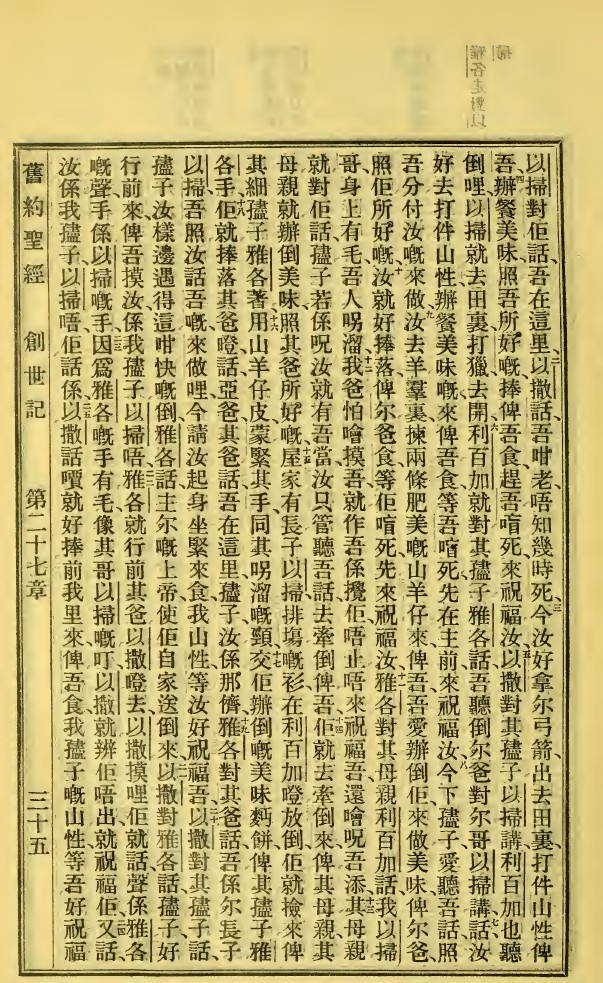 以掃對佢話、吾在這里、二以撒話、吾咁老、唔知幾時死、三今汝好拿尔弓箭、出去田裏、打件山性俾
吾、四辦餐美味、照吾所好嘅捧俾吾食、趕吾喑死來祝福汝、五以撒對其孻子以掃講、利百加也聽
倒哩、以掃就去田裏打獵去開、六利百加就對其孻子雅各話、吾聽倒尔爸對尔哥以掃講話、七汝
好去打件山性、辦餐美味嘅來俾吾食、等吾喑死先、在主前來祝福汝、八今下孻子愛聽吾話、照
吾分付汝嘅來做、九汝去羊羣裏、揀兩條肥美嘅山羊仔來俾吾、吾愛辦倒佢來做美味、俾尔爸
照佢所好嘅、十汝就好捧落俾尔爸食、等佢喑死先、來祝福汝、十一雅各對其母親利百加話、我以掃
哥身上有毛、吾人㘉溜、十二我爸怕噲摸吾、就作吾係攪佢、唔止唔來祝福吾、還噲呪吾添、十三其母親
就對佢話、孻子若係呪汝、就有吾當、汝只管聽吾話、去牽倒俾吾、十四佢就去牽倒來俾其母親、其
母親就辦倒美味、照其爸所好嘅、十五屋家有長子以掃排塲嘅衫、在利百加噔放倒、佢就撿來俾
其細孻子雅各著、十六用山羊仔皮蒙緊其手、同其㘉溜嘅頸、十七交佢辦倒嘅美味麪餅、俾其孻子雅
各手、十八佢就捧落其爸噔、話亞爸、其爸話、吾在這里、孻子汝係那儕、十九雅各對其爸話、吾係尔長子
以掃、吾照汝話吾嘅來做哩、今請汝起身坐緊來食我山性、等汝好祝福吾、二十以撒對其孻子話、
孻子汝樣邊遇得這咁快嘅倒、雅各話、主尔嘅上帝、使佢自家送倒來、二一以撒對雅各話、孻子好
行前來、俾吾摸汝、係我孻子以掃唔、二二雅各就行前其爸以撒噔去、以撒摸哩佢、就話、聲係雅各
嘅聲、手係以掃嘅手、二三因爲雅各嘅手有毛、像其哥以掃嘅、叮以撒就辨佢唔出、就祝福佢、二四又話、
汝係我孻子以掃唔、佢話係、二五以撒話、嗊就好捧前我里來、俾吾食我孻子嘅山性、等吾好祝福
舊約聖經 創世記 第二十七章 三十五